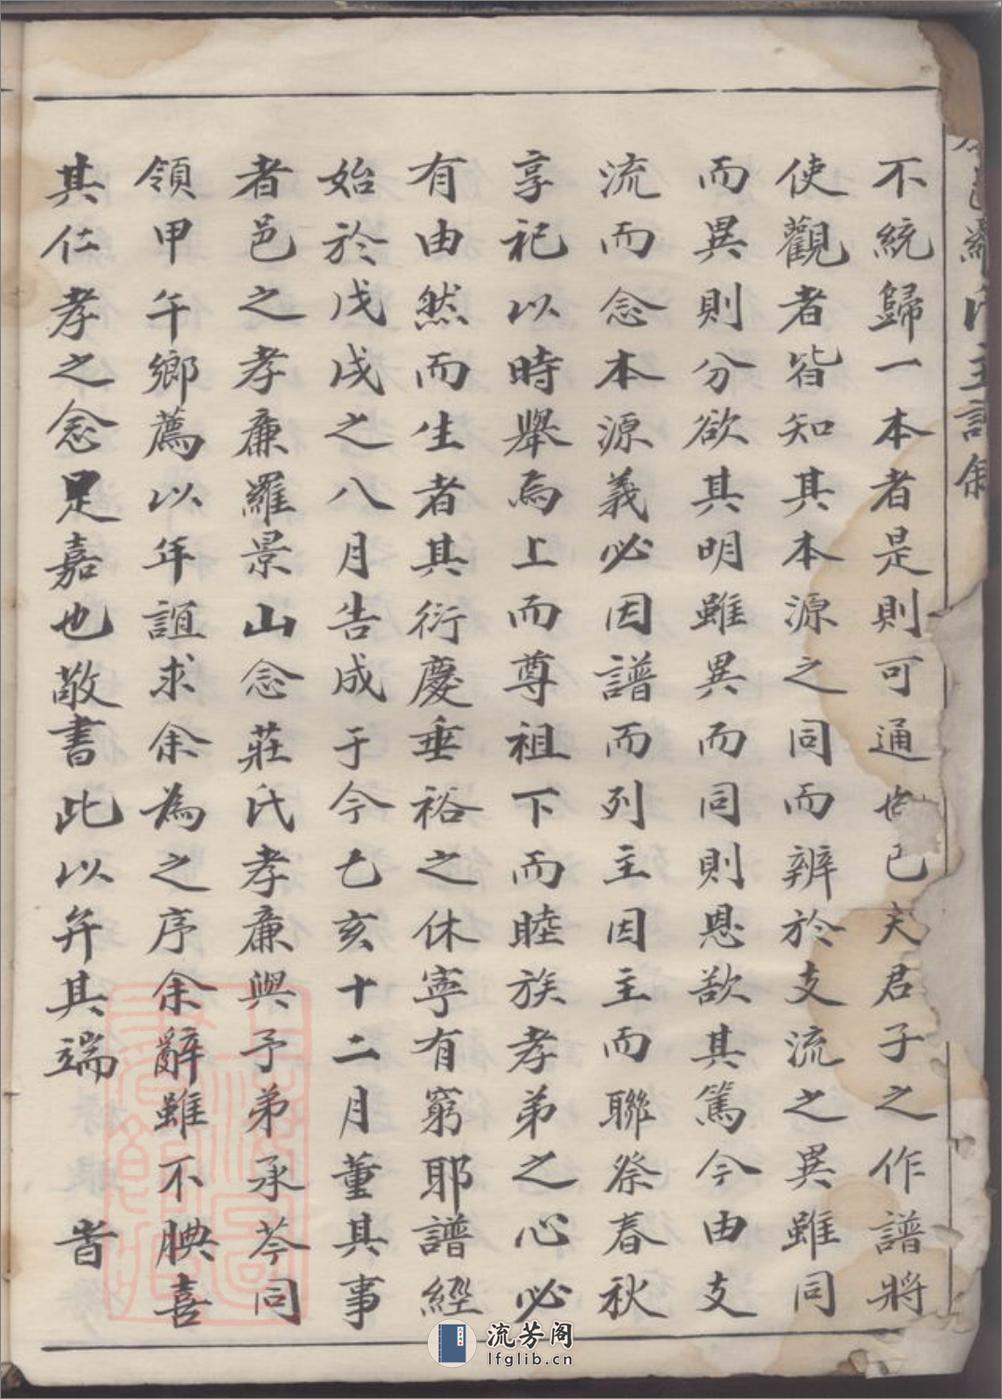 羅氏主譜敘
不統歸一本者是則可通也已夫君子之作譜將
使觀者皆知其本源之同而辨於支流之異雖同
而異則分欲其明雖異而同則恩欲其篤今由支
流而念本源義必因譜而列主因主而聯祭春秋
享祀以時舉焉上而尊祖下而睦族孝弟之心必
有由然而生者其衍慶垂裕之休寧有窮耶譜經
始於戊戌之八月告成于今乙亥十二月董其事
者邑之孝廉羅景山念莊氏孝廉與予弟承芩同
領甲午鄉薦以年誼求余為之序余辭雖不腆喜
其仁孝之念是嘉也敬書此以弁其端 旹
流芳阁
lfglib.cn